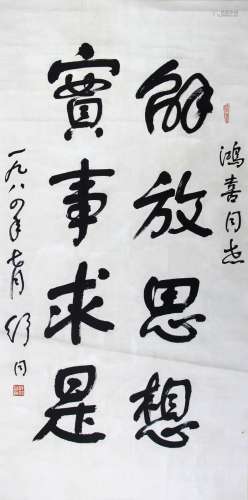 鴻喜同志
解放思想
實事求是
一九八四年七月 舒同